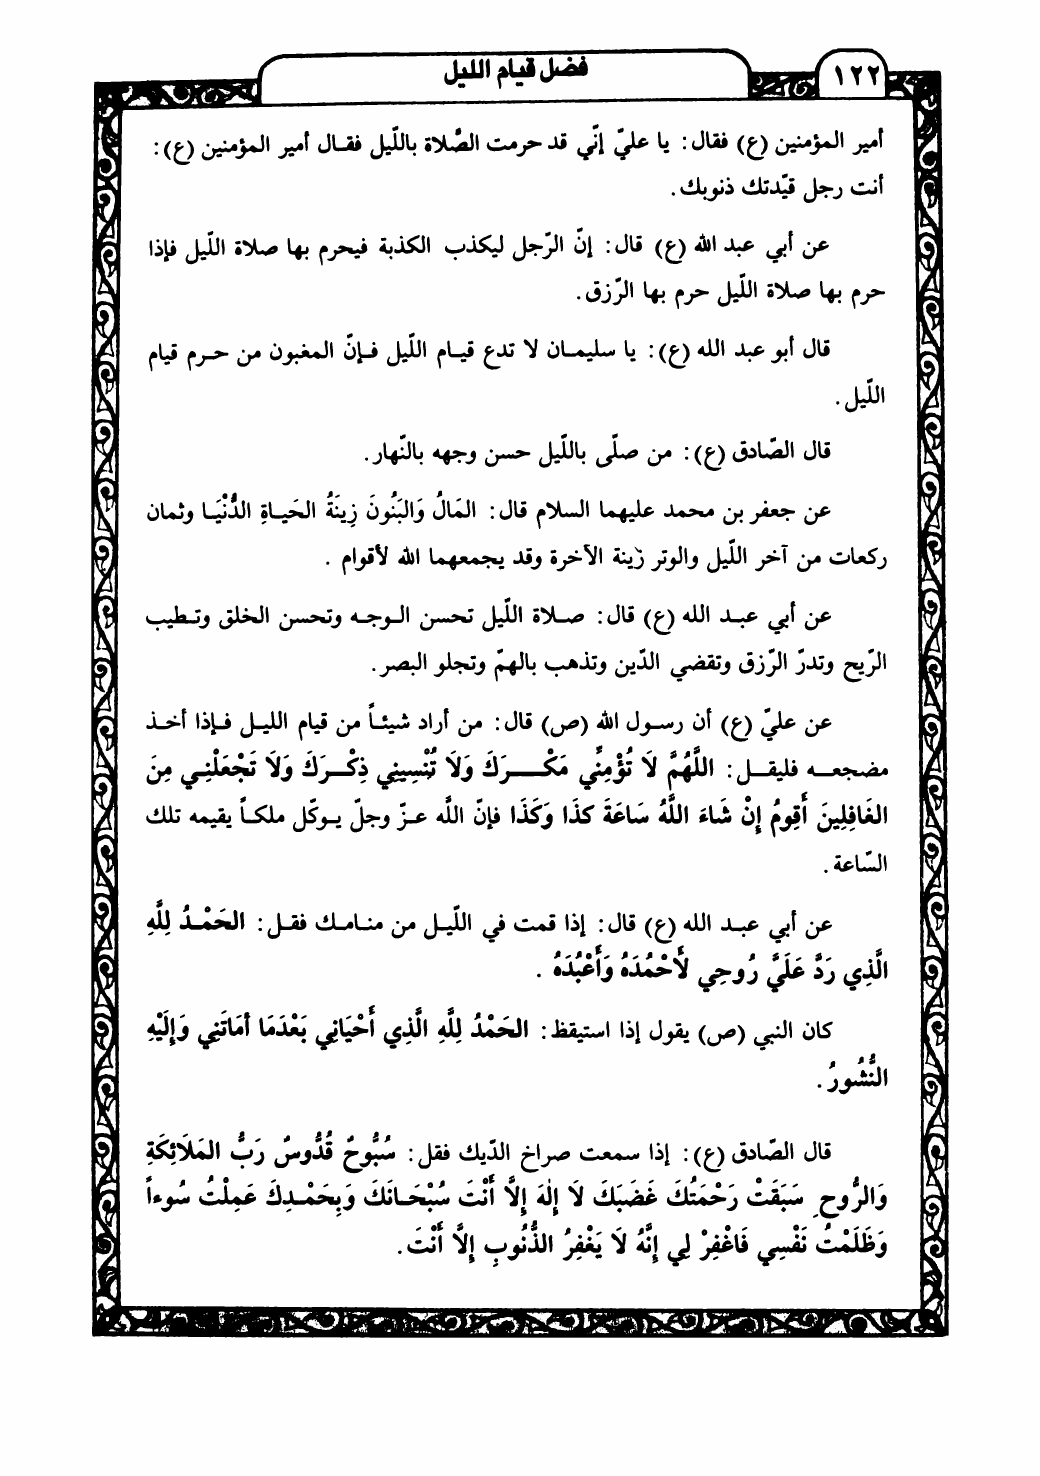 ١٢٢
فضل قيام الليل
أمير المؤمنين (ع) فقال: يا عليّ إنّي قد حرمت الصّلاة باللّيل فقال أمير المؤمنين (ع):
أنت رجل قيّدتك ذنوبك.
عن أبي عبد الله (ع) قال: إنّ الرّجل ليكذب الكذبة فيحرم بها صلاة اللّيل فإذا
حرم بها صلاة اللّيل حرم بها الرّزق.
قال أبو عبد الله (ع): يا سليمان لا تدع قيام اللّيل فإنّ المغبون من حرم قيام
اللّيل.
قال الصّادق (ع): من صلّى باللّيل حسن وجهه بالنّهار.
عن جعفر بن محمد عليهما السلام قال: المَالُ وَالبَنُونَ زِينَةُ الحَياةِ الدُّنْيَا وثمان
ركعات من آخر اللّيل والوتر زينة الآخرة وقد يجمعهما الله لأقوام.
عن أبي عبد الله (ع) قال: صلاة اللّيل تحسن الوجه وتحسن الخلق وتطيب
الرّيح وتدرّ الرّزق وتقضي الدّين وتذهب بالهمّ وتجلو البصر.
عن عليّ (ع) أن رسول الله (ص) قال: من أراد شيئاً من قيام الليل فإذا أخذ
مضجعه فليقل: اللَّهُمَّ لَا تُؤْمِنِّي مَكْرَكَ وَلَا تُنْسِينِي ذِكْرَكَ وَلَا تَجْعَلْنِي مِنَ
الغَافِلِينَ أَقِومُ إِنْ شَاءَ اللَّهُ سَاعَةَ كَذَا وَكَذَا فإنّ اللَّه عزّ وجلّ يوكّل ملكاً يقيمه تلك
السّاعة.
عن أبي عبد الله (ع) قال: إذا قمت في اللّيل من منامك فقل: الحَمْدُ لِلَّهِ
الَّذِي رَدَّ عَلَيَّ رُوحِي لَأَحْمُدَهُ وَأَعْبُدَهُ.
كان النبي (ص) يقول إذا استيقظ: الحَمْدُ لِلَّهِ الَّذِي أَحْيَانِي بَعْدَمَا أَمَاتَنِي وَإِلَيْهِ
النُّشُورُ.
قال الصّادق (ع): إذا سمعت صراخ الدّيك فقل: سُبُّوحٌ قُدُّوسٌ رَبُّ المَلَائِكَةِ
وَالرُّوحِ سَبَقَتْ رَحْمَتُكَ غَضَبَكَ لَا إِلَهَ إِلَّا أَنْتَ سُبْحَانَكَ وَبِحَمْدِكَ عَمِلْتُ سُوءاً
وَظَلَمْتُ نَفْسِي فَاغْفِرْ لِي إِنَّهُ لَا يَغْفِرُ الذُّنُوبِ إِلَّا أَنْتَ.